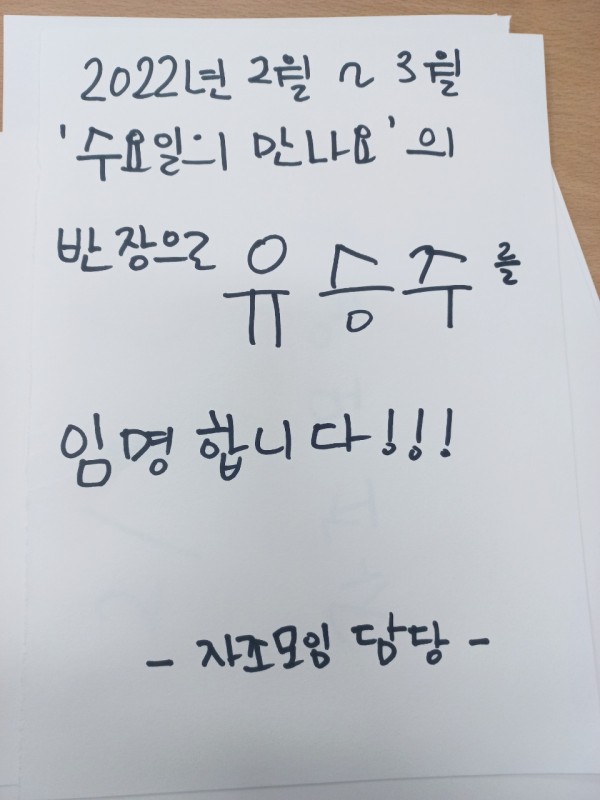 2022년 2월 ~ 3월
'수요일의 만나요'의
반장으로 유승주를
임명합니다!!!
- 자조모임 담당 -